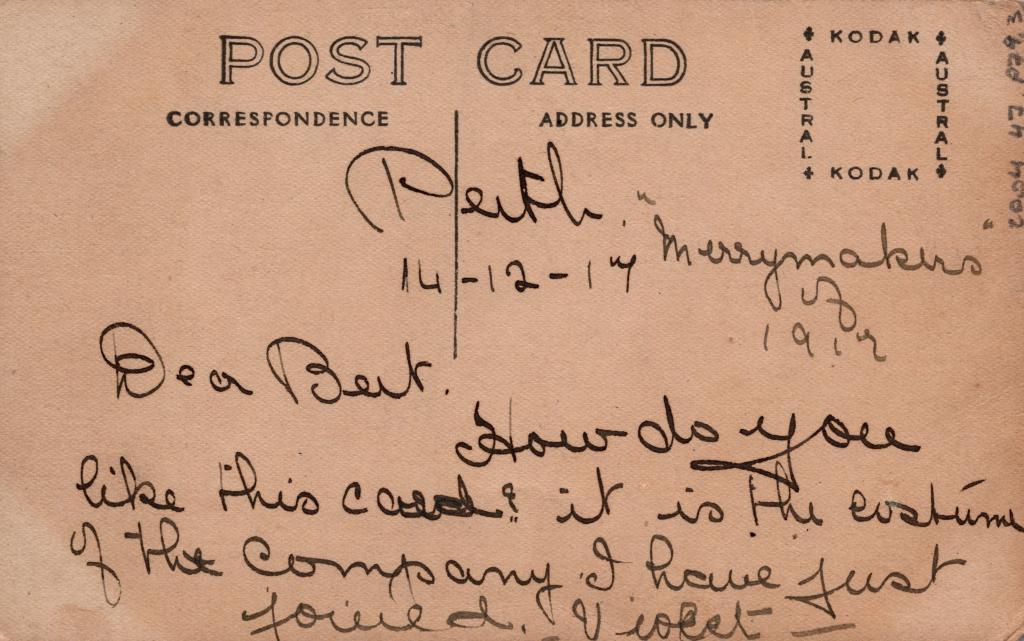 POST CARD
CORRESPONDENCE
ADDRESS ONLY
KODAK
AUSTRAL
AUSTRAL
KODAK
Perth.
14-12-17
"Merrymakers"
of
1917
Dear Bert.
How do you
like this card? it is the costume
of the Company I have just
joined. Violet